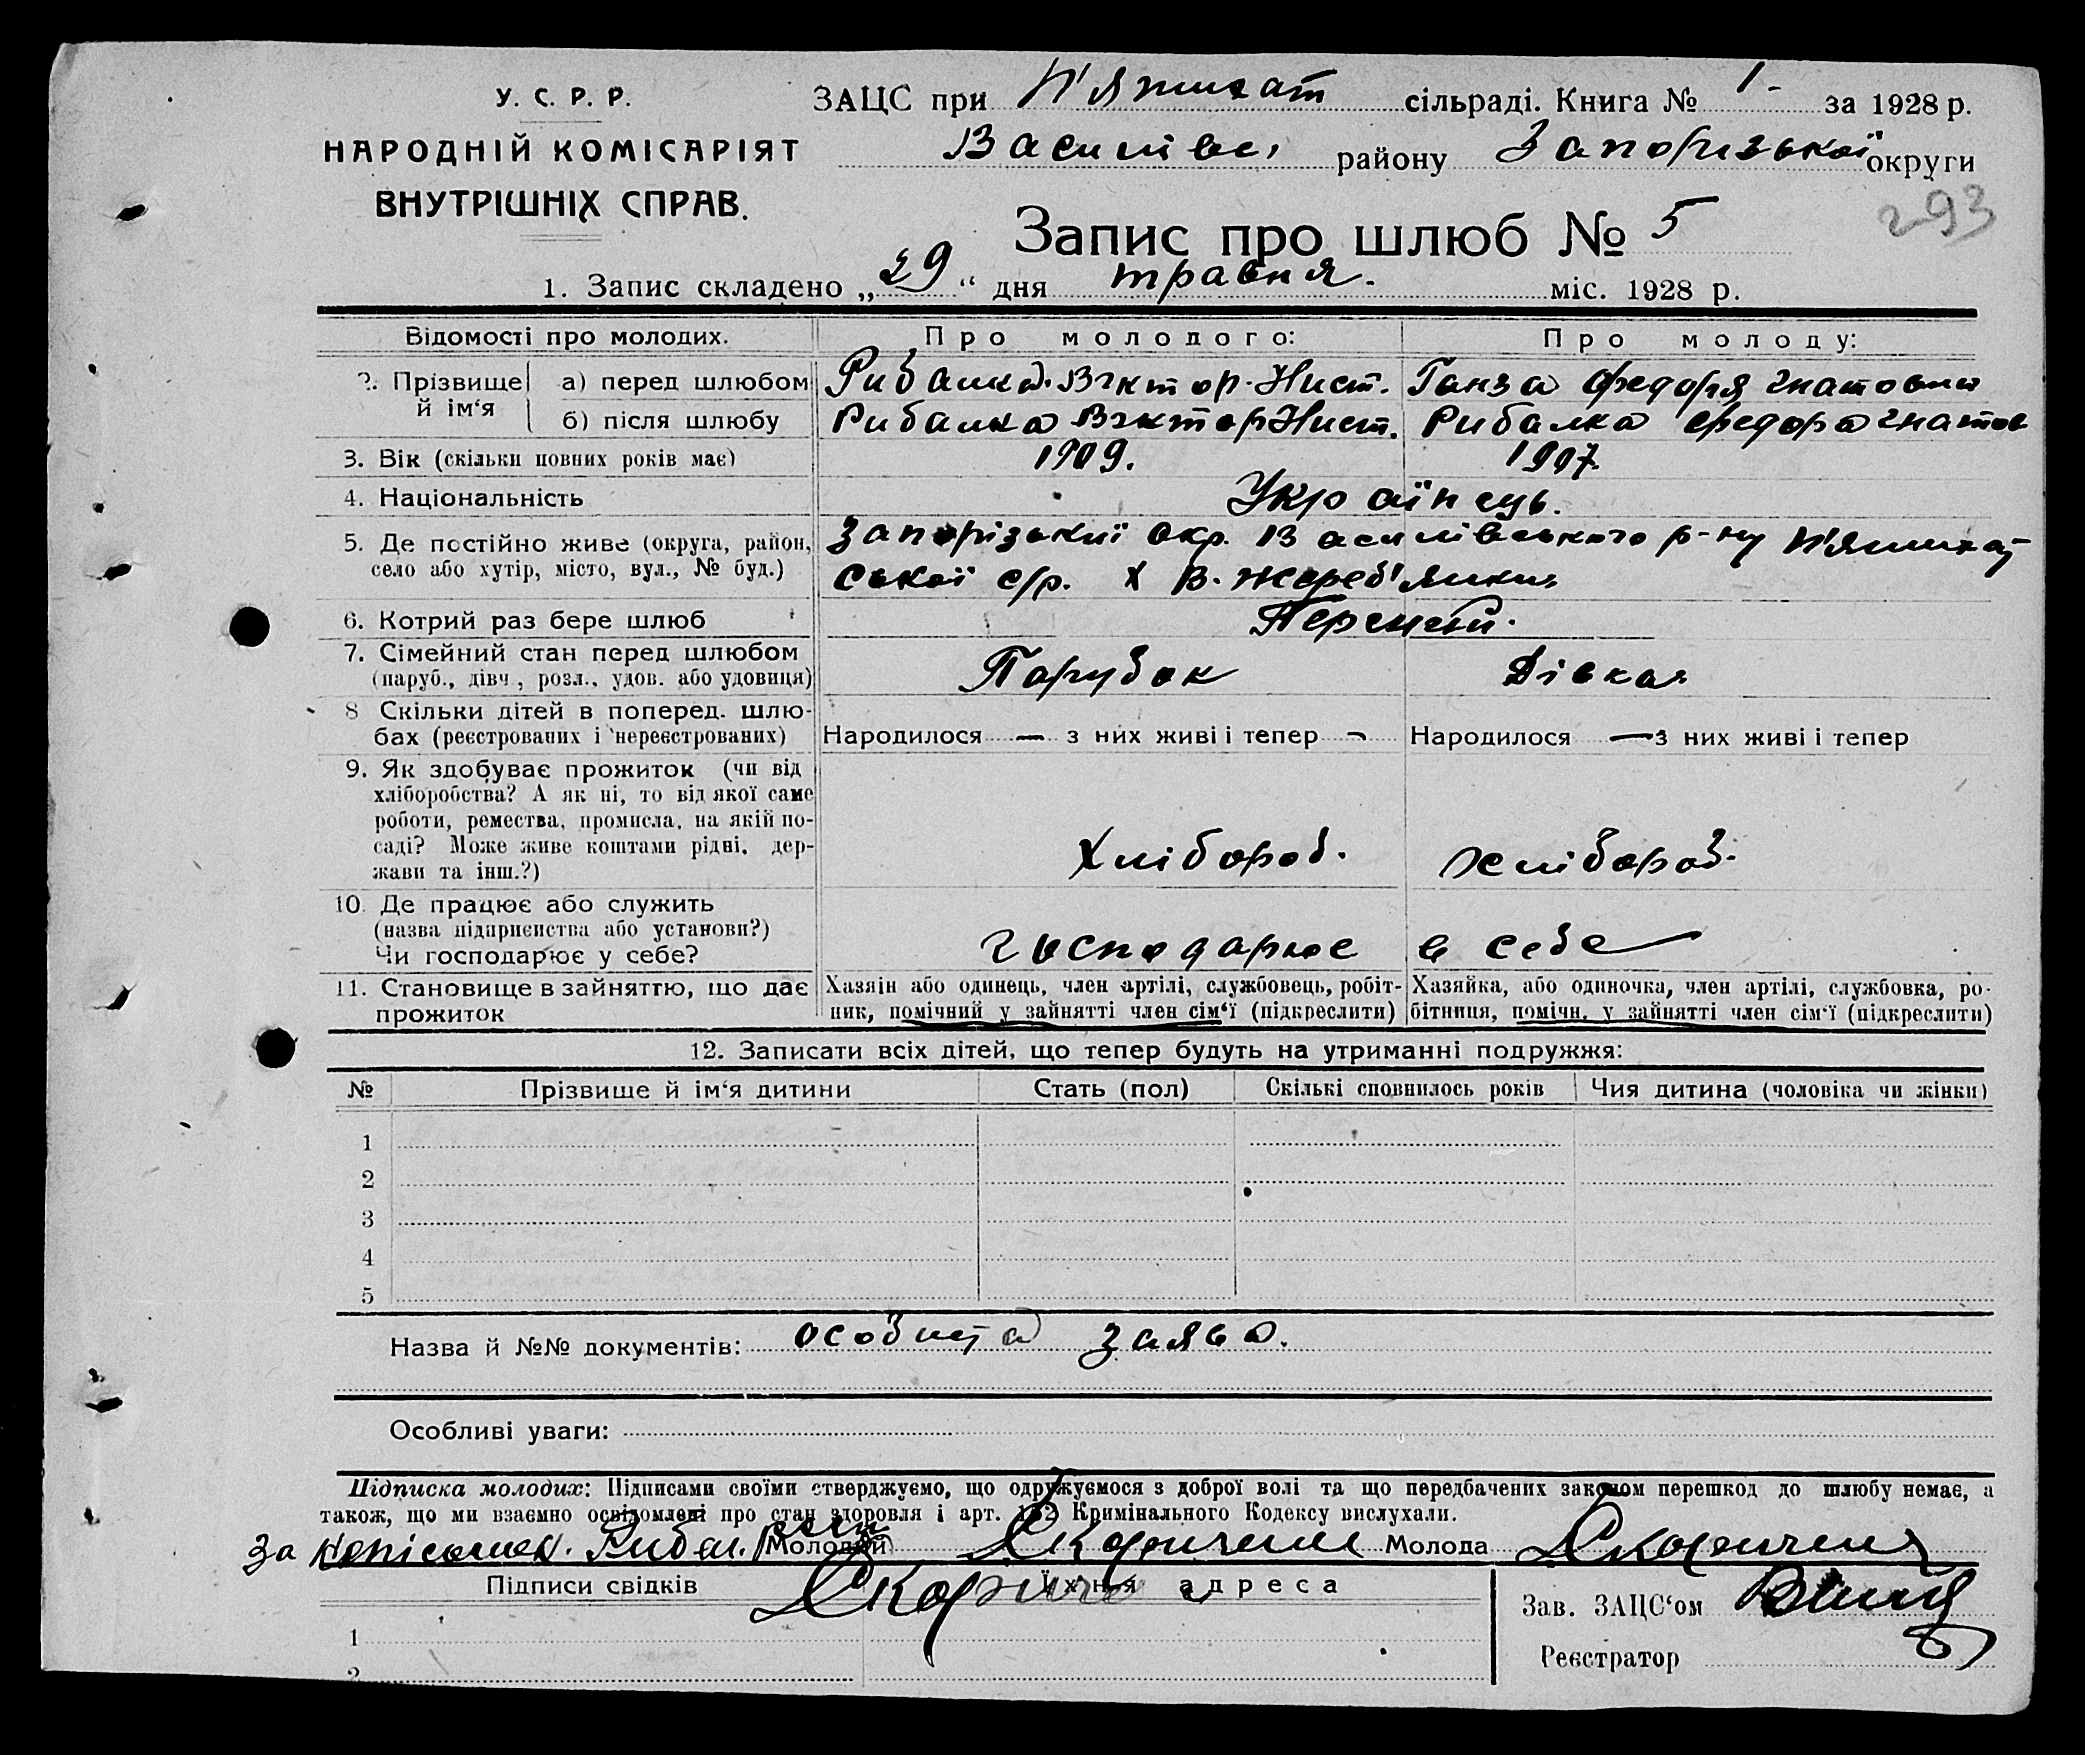 У. С. Р. Р.
НАРОДНІЙ КОМІСАРІЯТ
ВНУТРІШНІХ СПРАВ.
ЗАЦС при П'ятихат сільраді. Книга № 1 - за 1928 р.
Василівс. району Запорізької округи
293
Запис про шлюб № 5
1. Запис складено „29“ дня травня. міс. 1928 р.
Відомості про молодих. Про молодого: Про молоду:
2. Прізвище й ім‘я
а) перед шлюбом Рибалка Віктор Нист. Ганза Федора Гнатовна
б) після шлюбу Рибалка Віктор Нист. Рибалка Федора Гнатов
3. Вік (скільки повних років має) 1909. 1907.
4. Національність Українець.
5. Де постійно живе (округа, район, село або хутір, місто, вул., № буд.) Запорізькиї окр. Василівського р-ну П'ятихат
ської с/р. х В.
6. Котрий раз бере шлюб
7. Сімейний стан перед шлюбом Парубок Дівка
(паруб., дівч., розл., удов. або удовиця)
8 Скільки дітей в поперед. шлю-
бах (реєстрованих і нереєстрованих) Народилося — з них живі і тепер - Народилося — з них живі і тепер
9. Як здобуває прожиток (чи від
хліборобства? А як ні, то від якої саме
роботи, ремества, промисла, на якій по-
саді? Може живе коштами рідні, дер-
жави та інш.?) Хлібороб. хлібороб.
10. Де працює або служить
(назва підприємства або установи?)
Чи господарює у себе? господарює в себе
11. Становище в зайняттю, що дає
прожиток
Хазяїн або одинець, член артілі, службовець, робіт-
ник, помічний у зайнятті член сім‘ї (підкреслити)
Хазяйка, або одиночка, член артілі, службовка, ро-
бітниця, помічн. у зайнятті член сім‘ї (підкреслити)
12. Записати всіх дітей, що тепер будуть на утриманні подружжя:
№ Прізвище й ім‘я дитини Стать (пол) Скількі сповнилось років Чия дитина (чоловіка чи жінки)
1
2
3
4
5
Назва й №№ документів: особиста заява.
Особливі уваги:
Підписка молодих: Підписами своїми стверджуємо, що одружуємося з доброї волі та що передбачених законом перешкод до шлюбу немає, а
також, що ми взаємно освідомлені про стан здоровля і арт. Кримінального Кодексу вислухали.
за Рибал. Молодий Молода
Підписи свідків Їхня адреса
1
2
Зав. ЗАЦС‘ом
Реєстратор